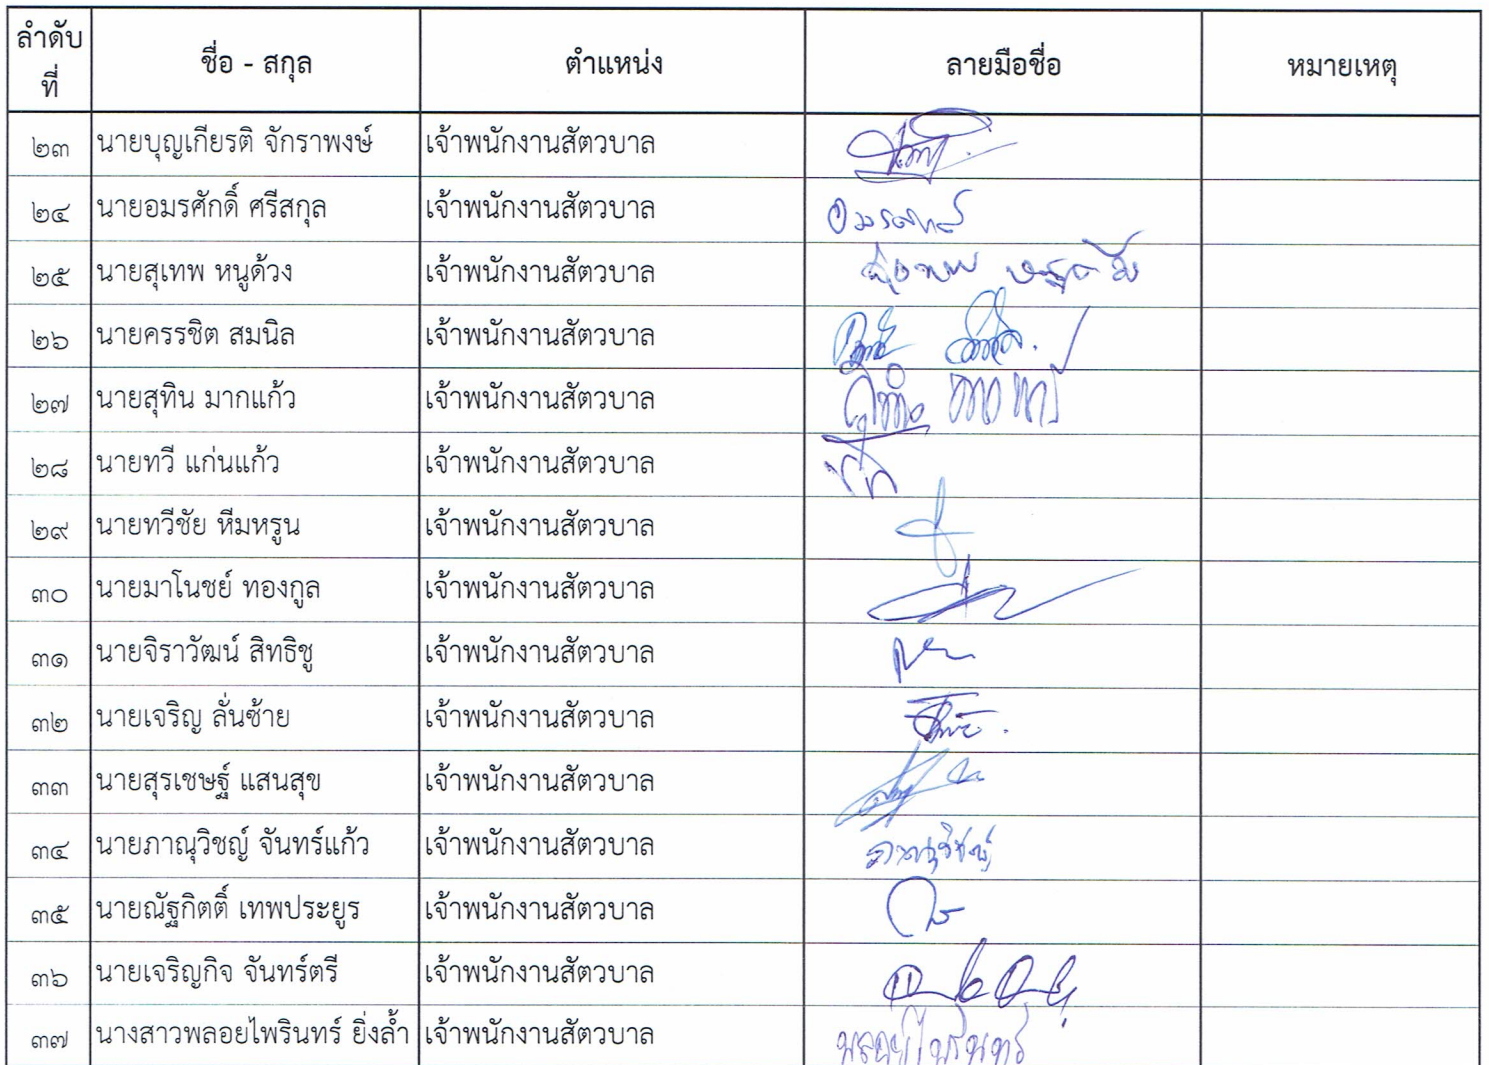 ลำดับที่ ชื่อ - สกุล ตำแหน่ง ลายมือชื่อ หมายเหตุ
๒๓ นายบุญเกียรติ จักราพงษ์ เจ้าพนักงานสัตวบาล
๒๔ นายอมรศักดิ์ ศรีสกุล เจ้าพนักงานสัตวบาล
๒๕ นายสุเทพ หนูด้วง เจ้าพนักงานสัตวบาล
๒๖ นายครรชิต สมนิล เจ้าพนักงานสัตวบาล
๒๗ นายสุทิน มากแก้ว เจ้าพนักงานสัตวบาล
๒๘ นายทวี แก่นแก้ว เจ้าพนักงานสัตวบาล
๒๙ นายทวีชัย หีมหรูน เจ้าพนักงานสัตวบาล
๓๐ นายมาโนชย์ ทองกูล เจ้าพนักงานสัตวบาล
๓๑ นายจิราวัฒน์ สิทธิชู เจ้าพนักงานสัตวบาล
๓๒ นายเจริญ ลั่นซ้าย เจ้าพนักงานสัตวบาล
๓๓ นายสุรเชษฐ์ แสนสุข เจ้าพนักงานสัตวบาล
๓๔ นายภาณุวิชญ์ จันทร์แก้ว เจ้าพนักงานสัตวบาล ภาณุวิชญ์
๓๕ นายณัฐกิตติ์ เทพประยูร เจ้าพนักงานสัตวบาล
๓๖ นายเจริญกิจ จันทร์ตรี เจ้าพนักงานสัตวบาล
๓๗ นางสาวพลอยไพรินทร์ ยิ่งล้ำ เจ้าพนักงานสัตวบาล พลอยไพรินทร์